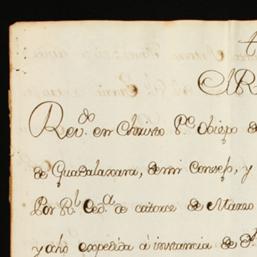 A R
Rev.do en Christo P.e Obispo de
de Guadalaxara, de mi Consejo, y
Por R.l Ced.a de catorce de Marzo
y ocho expedida á instancia de